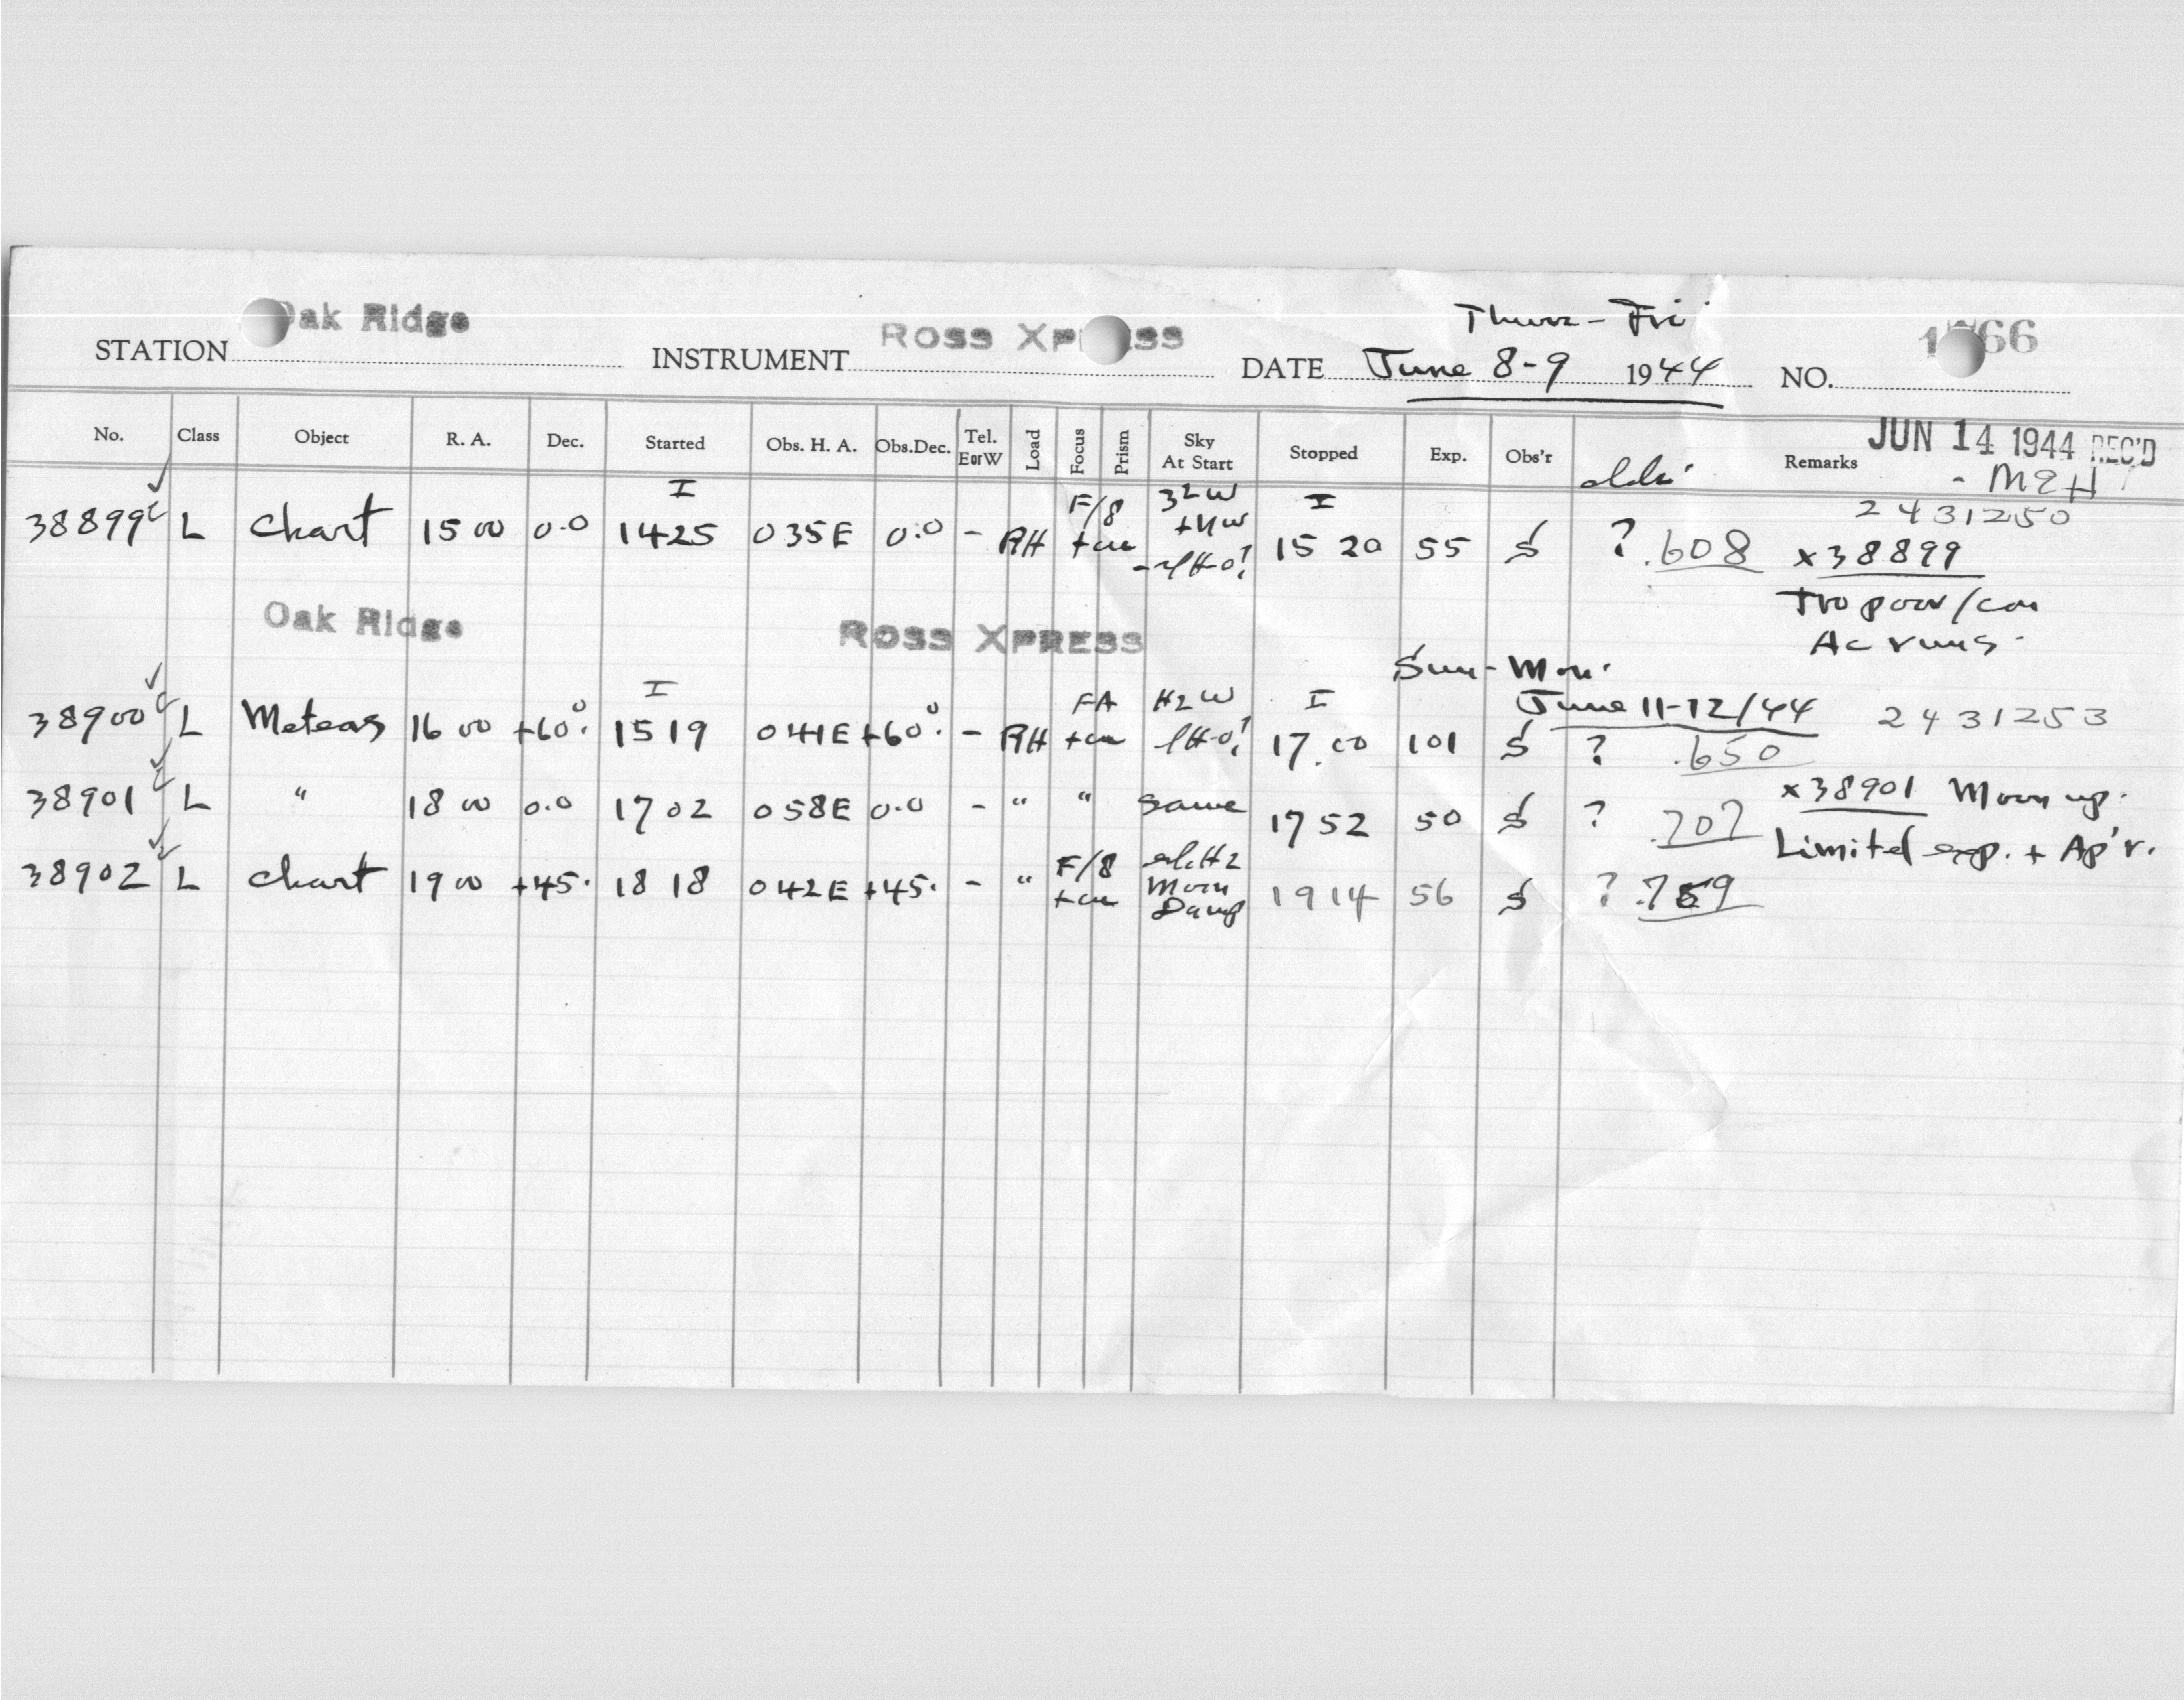 Oak Ridge Ross Xpress Thurs-Fri 1 66
STATION INSTRUMENT DATE June 8-9 1944 NO.
JUN 14 1944 REC'D
No. Class Object R. A. Dec. Started Obs. H. A. Obs.Dec. Tel. E or W Load Focus Prism Sky At Start Stopped Exp. Obs'r Remarks
- M2H
I F/8 32W I 2431250
38899 L Chart 15 00 0.0 1425 035E 0.0 - RH 15 20 55 S ? .608 x38899
Too poor/con
Oak Ridge ROSS XPRESS Ac runs.
Sun-Mon.
I FA H2W I June 11-12/44 2431253
38900 L Meteors 16 00 +60° 1519 041E +60° - RH 17.00 101 S ? .650
38901 L " 18 00 0.0 1702 058E 0.0 - " " same 1752 50 S ? .707 x38901 Moon up.
Limited exp. + Ap'r.
38902 L Chart 19 00 +45. 18 18 042E +45. - " F/8 Moon Damp 1914 56 S ? .759